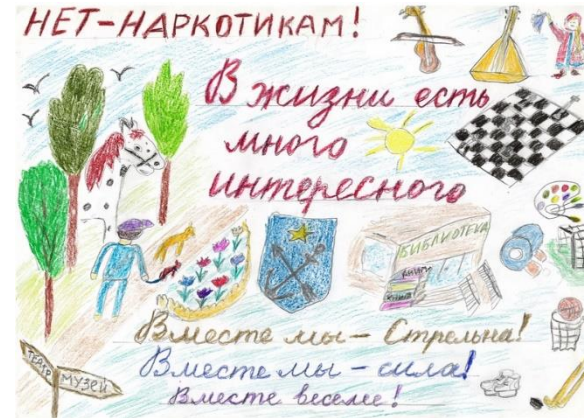 НЕТ-НАРКОТИКАМ!
В жизни есть
много
интересного
БИБЛИОТЕКА
КНИГИ
КНИГА
Вместе мы - Стрельна!
Вместе мы - сила!
Вместе веселее!
ТЕАТР
МУЗЕЙ